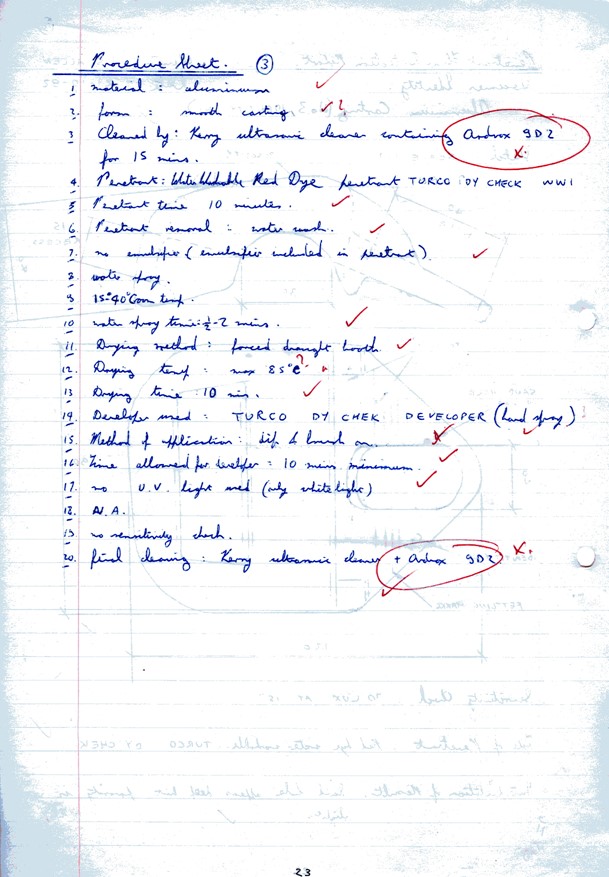 Procedure Sheet. 3
1 material : aluminium
2. form : smooth casting ?
3 Cleaned by : Kerry ultrasonic cleaner containing Androx 9D2 x.
for 15 mins.
4. Penetrant : Red Dye penetrant TURCO DY CHECK WW1
5 Penetrant time 10 minutes.
6. Penetrant removal : water wash.
7. no emulsifier (emulsifier included in penetrant)
8. water spray.
9 15°-40°C temp.
10 water spray time : ½-2 mins.
11. Drying method : forced draught booth.
12. Drying temp : max 85°C ?
13 Drying time : 10 min.
14. Developer used : TURCO DY CHEK DEVELOPER (hand spray)
15. Method of application : dip & brush on.
16. Time allowed for developer : 10 mins minimum.
17. no U.V. light used (only white light)
18. N.A.
19. no sensitivity check.
20. final cleaning : Kerry ultrasonic cleaner + Androx 9D2 x.
23